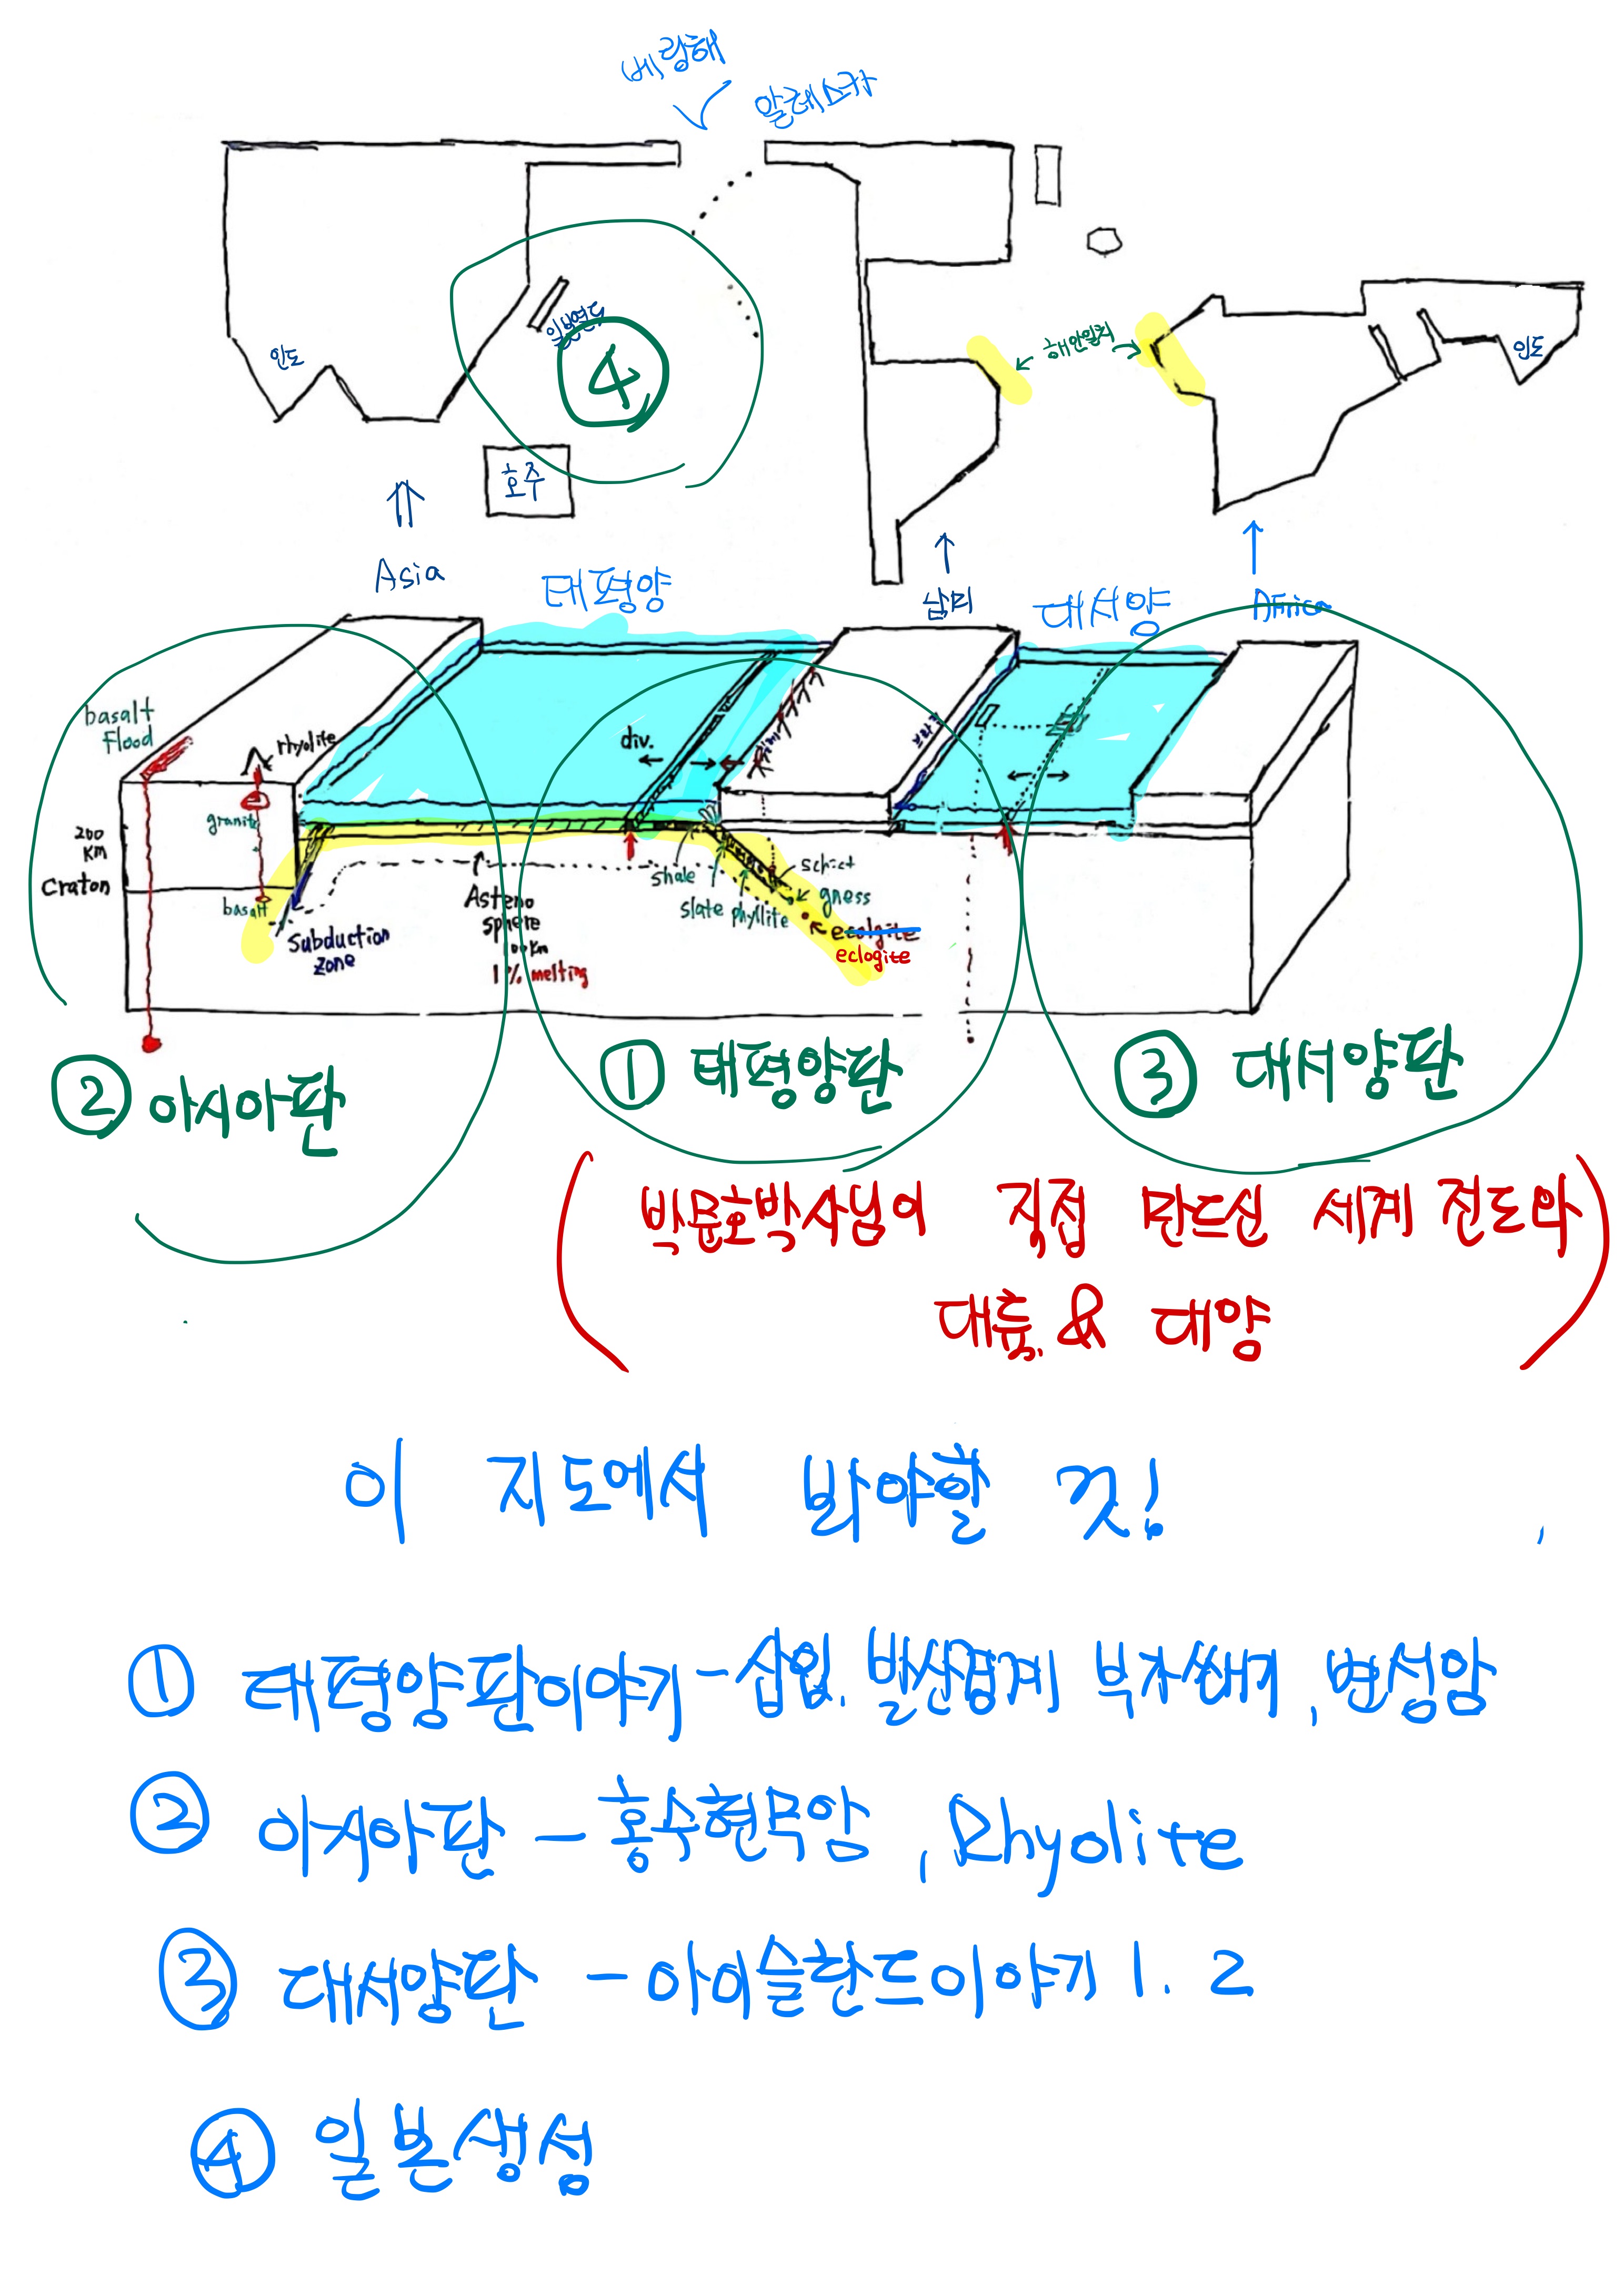 베링해
알레스카
일본열도
4
인도
해안일치
인도
호주
Asia
태평양
남미
대서양
Africa
basalt
flood
rhyolite
div.
granite
200
KM
Craton
basalt
Subduction
zone
Asteno
sphere
100km
1% melting
shale
slate phyllite
schist
gness
ecolgite
eclogite
② 아시아판
① 태평양판
③ 대서양판
(박문호박사님이 직접 만드신 세계 전도와
대륙 & 대양)
이 지도에서 봐야할 것!
① 태평양판이야기 - 섭입, 발산경계 부자쌔기, 변성암
② 아시아판 - 홍수현무암, Rhyolite
③ 대서양판 - 아이슬란드이야기 1. 2
④ 일본생성